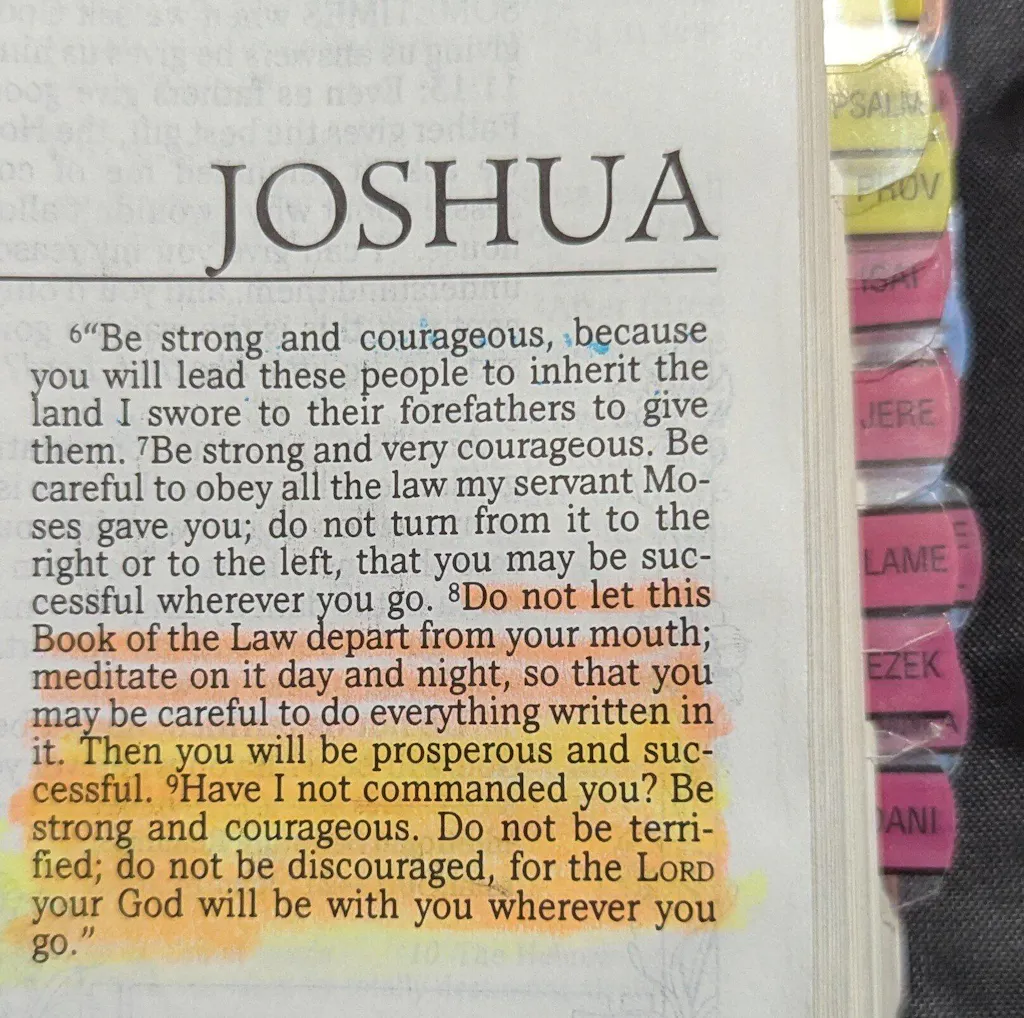 JOSHUA
6“Be strong and courageous, because
you will lead these people to inherit the
land I swore to their forefathers to give
them. 7Be strong and very courageous. Be
careful to obey all the law my servant Mo-
ses gave you; do not turn from it to the
right or to the left, that you may be suc-
cessful wherever you go. 8Do not let this
Book of the Law depart from your mouth;
meditate on it day and night, so that you
may be careful to do everything written in
it. Then you will be prosperous and suc-
cessful. 9Have I not commanded you? Be
strong and courageous. Do not be terri-
fied; do not be discouraged, for the LORD
your God will be with you wherever you
go.”
PSALM
PROV
ISAI
JERE
LAME
EZEK
DANI